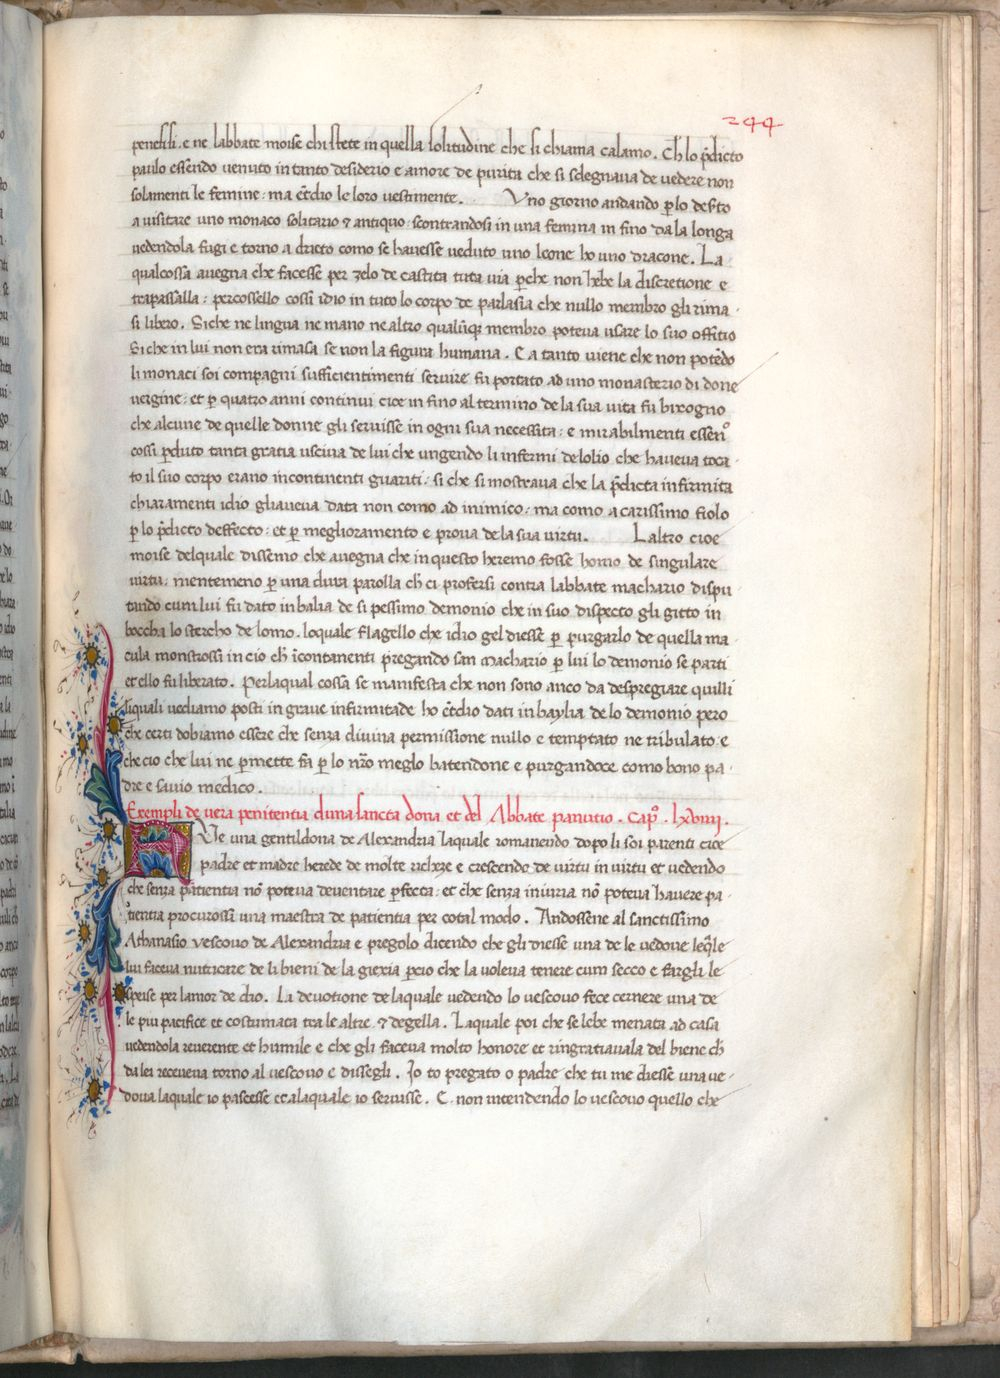 244
penesisi. e ne labbate moise chi stete in quella solitudine che si chiama calamo. Ch̄ lo p̄dicto
paulo essendo uenuto in tanto desiderio e amore de purita che si sdegnaua de uedere non
solamenti le femine: ma et̄dio le loro uestimente. Vno giorno andando p̱ lo des̄to
a uisitare uno monaco solitario & antiquo scontrandosi in una femina in fino da la longa
uedendola fugi e torno a drieto como se hauesse ueduto uno leone ho uno dracone. La
qualcossa auegna che facesse per zelo de castita tuta uia p̱che non hebe la discretione e
trapassalla: percossello cossi idio in tuto lo corpo de parlasia che nullo membro gli rima
si libero. Siche ne lingua ne mano ne altro qualūq; membro poteua usare lo suo offitio
Siche in lui non era rimasa se non la figura humana. E a tanto uiene che non potēdo
li monaci soi compagni sufficientimenti seruire fu portato ad uno monasterio di done
uergine: et p̱ quatro anni continui cioe in fino al termino de la sua uita fu bixogno
che alcune de quelle donne gli seruisse in ogni sua necessita: e mirabilmenti essenᵒ
cossi p̱duto tanta gratia usciua de lui che ungendo li infermi de lolio che haueua toca
to il suo corpo erano incontinenti guariti: si che si mostraua che la p̄dicta infirmita
chiaramenti idio gliaueua data non como ad inimico: ma como a carissimo fiolo
p̱ lo p̄dicto deffecto: et p̱ meglioramento e proua de la sua uirtu. Laltro cioe
moise delquale dissemo che auegna che in questo heremo fosse homo de singulare
uirtu: mentemeno p̱ una dura parolla ch̄ ci profersi contra labbate machario dispu
tando cum lui fu dato in balia de si pessimo demonio che in suo dispecto gli gitto in
boccha lo stercho de lomo. loquale flagello che idio gel diesse p̱ purgarlo de quella ma
cula monstrossi in cio ch̄ īcontanenti pregando san Machario p̱ lui lo demonio se parti
et ello fu liberato. Perlaqual cossa se manifesta che non sono anco da despregiare quilli
liquali uediamo posti in graue infirmitade ho et̄dio dati in baylia de lo demonio pero
che certi dobiamo essere che senza diuina permissione nullo e temptato ne tribulato: e
che cio che lui ne p̱mette fa p̱ lo nr̄o meglo batendone e purgandoce como bono pa
dre e sauio medico.
Exempli de uera penitentia duna sancta dona et del Abbate panutio. Capᵒ. lxviiij.
FVe una gentildona de Alexandria laquale romanendo dopo li soi parenti cioe
padre et madre herede de molte richeze e crescendo de uirtu in uirtu et uedendo
che senza patientia nō poteua deuentare p̱fecta: et che senza iniuria nō poteua hauere pa
tientia procurossi una maestra de patientia per cotal modo. Andossene al sanctissimo
Athanasio uescouo de Alexandria e pregolo dicendo che gli diesse una de le uedoue leq̄le
lui faceua nutricare de li bieni de la giexia p̱cio che la uoleua tenere cum secco e fargli le
speise per lamor de dio. La deuotione de laquale uedendo lo uescouo fece cernere una de
le piu pacifice et costumata tra le altre. & degella. Laquale poi che se lebe menata ad casa
uedendola reuerente et humile e che gli faceua molto honore et ringratiauala del biene ch̄
da lei receueua torno al uescouo e dissegli. Jo to pregato o padre che tu me diesse una ue
doua laquale io pascesse et alaquale io seruisse. E non intendendo lo uescouo quello che